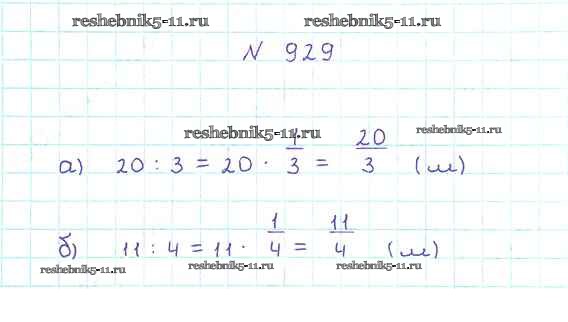 reshebnik5-11.ru reshebnik5-11.ru
N 929
reshebnik5-11.ru reshebnik5-11.ru
а) 20 : 3 = 20 · 1/3 = 20/3 (м)
б) 11 : 4 = 11 · 1/4 = 11/4 (м)
reshebnik5-11.ru reshebnik5-11.ru reshebnik5-11.ru